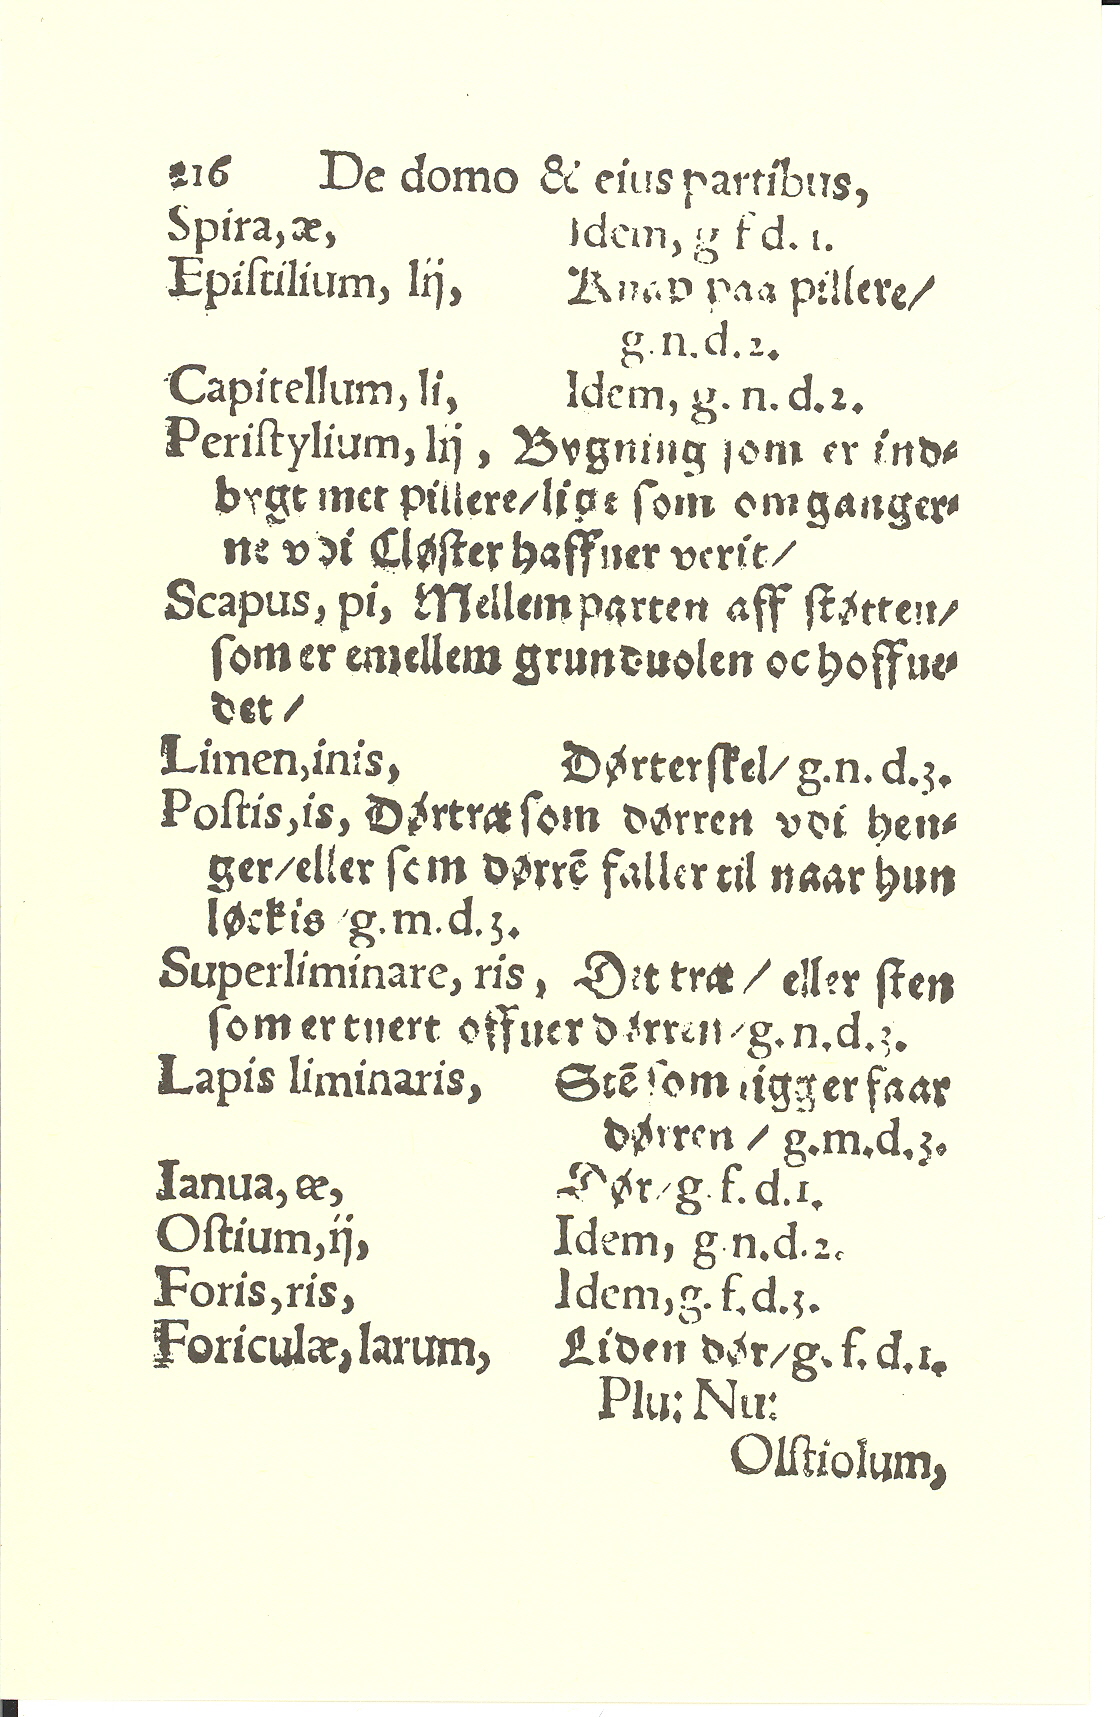 216 De domo & eius partibus,
Spira, æ, Idem, g f d. 1.
Epiſtilium, lij, Knap paa pillere/
g. n. d. 2.
Capitellum, li, Idem, g. n. d. 2.
Periſtylium, lij, Bygning ſom er ind⸗
bygt met pillere/lige ſom omganger⸗
ne vdi Cløſter haffuer verit/
Scapus, pi, Mellemparten aff ſtøtten/
ſom er emellem grunduolen oc hoffue⸗
det/
Limen, inis, Dørterſkel/ g. n. d. 3.
Poſtis, is, Dørtræ ſom dørren vdi hen⸗
ger/eller ſom dørrē faller til naar hun
løckis/g. m. d. 3.
Superliminare, ris, Dit træ/ eller ſten
ſom er tuert offuer dørren/g. n. d. 3.
Lapis liminaris, Stē ſom ligger faar
dørren/ g. m. d. 3.
Ianua, æ, Dør/g. f. d. 1.
Oſtium, ij, Idem, g. n. d. 2.
Foris, ris, Idem, g. f. d. 3.
Foriculæ, larum, Liden dør/g. f. d. 1.
Plu: Nu:
Olſtiolum,